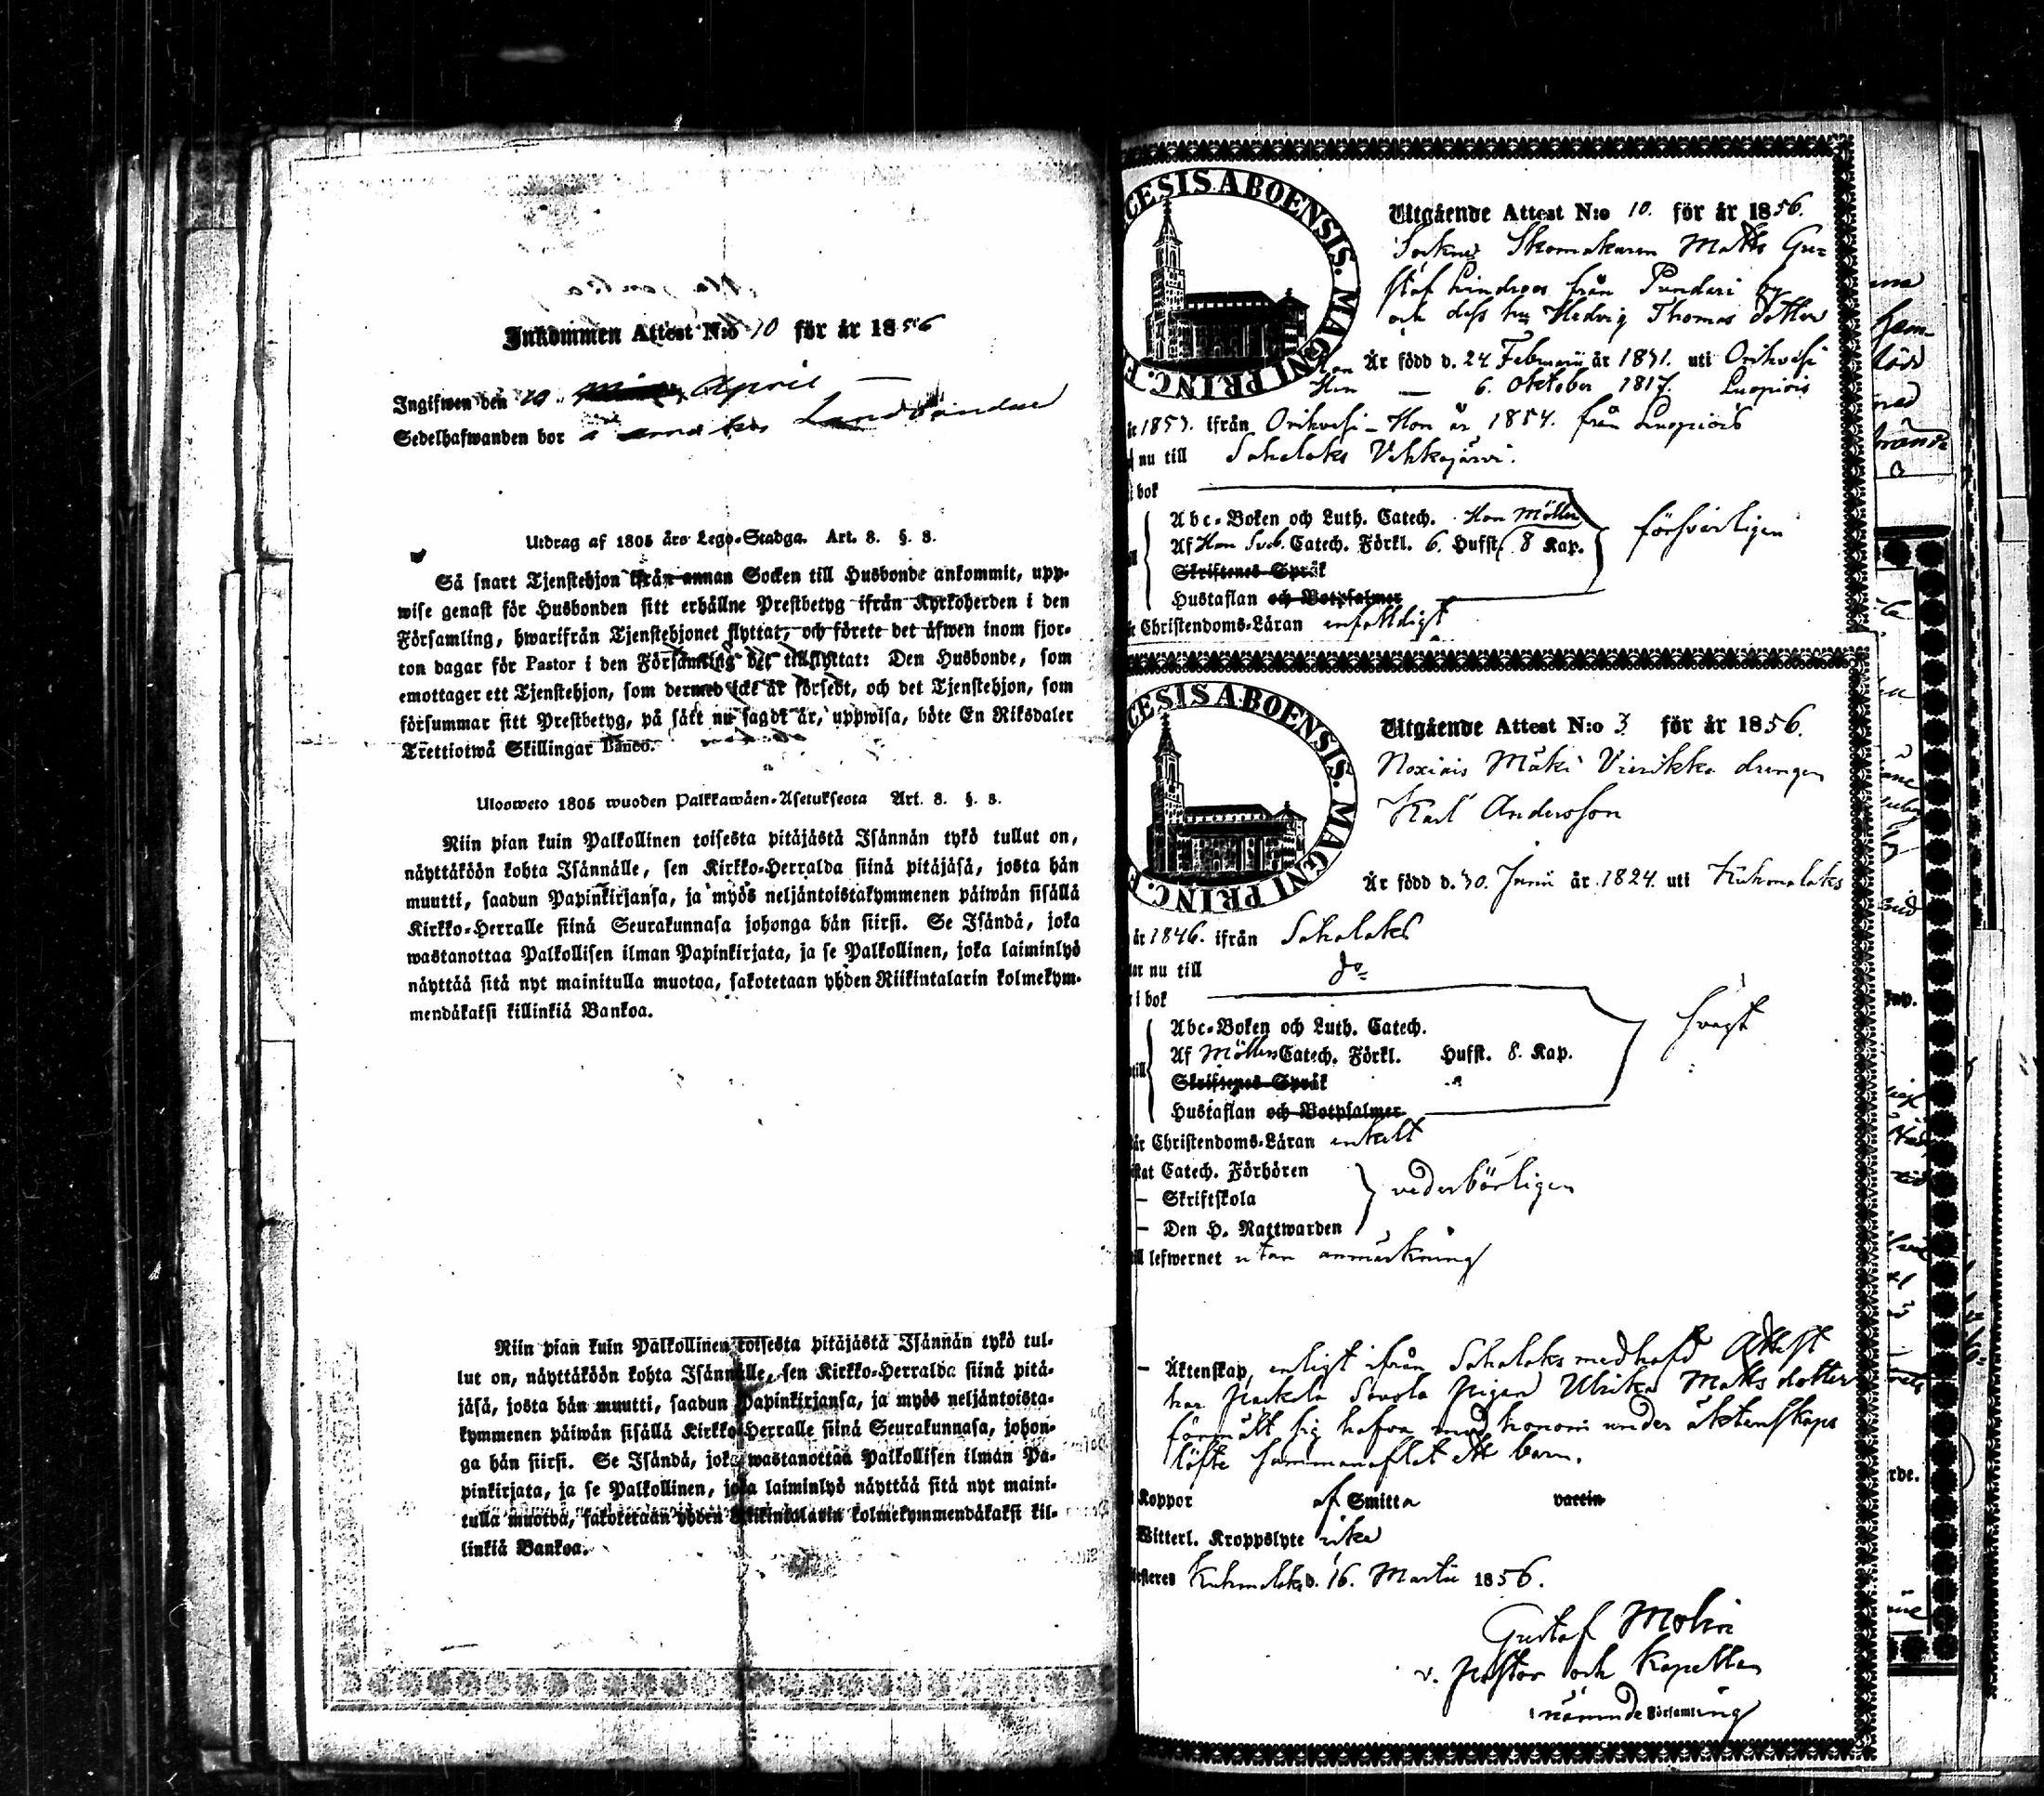 Inkommen Attest N:o 10 för år 1856
Ingifwen den 10 April
Sedelhafwanden bor
Utdrag af 1805 års Lego-Stadga. Art. 8. §. 8.
Så snart Tjenstehjon ifrån annan Socken till Husbonde ankommit, upp-
wise genast för Husbonden sitt erhållne Prestbetyg ifrån Kyrkoherden i den
Församling, hwarifrån Tjenstehjonet flyttat, och förete det äfwen inom fjor-
ton dagar för Pastor i den Församling det tillflyttat: Den Husbonde, som
emottager ett Tjenstehjon, som dermed icke är försedt, och det Tjenstehjon, som
försummar sitt Prestbetyg, på sätt nu sagdt är, uppwisa, böte En Riksdaler
Trettiotwå Skillingar Banco.
Ulosweto 1805 wuoden Palkkawäen-Asetuksesta Art. 8. §. 8.
Niin pian kuin Palkollinen toisesta pitäjästä Isännän tykö tullut on,
näyttäköön kohta Isännälle, sen Kirkko-Herralda siinä pitäjäsä, josta hän
muutti, saadun Papinkirjansa, ja myös neljäntoistakymmenen päiwän sisällä
Kirkko-Herralle siinä Seurakunnasa johonga hän siirsi. Se Isändä, joka
wastanottaa Palkollisen ilman Papinkirjata, ja se Palkollinen, joka laiminlyö
näyttää sitä nyt mainitulla muotoa, sakotetaan yhden Riikintalarin kolmekym-
mendäkaksi killinkiä Bankoa.
Niin pian kuin Palkollinen toisesta pitäjästä Isännän tykö tul-
lut on, näyttäköön kohta Isännälle, sen Kirkko-Herralda siinä pitä-
jäsä, josta hän muutti, saadun Papinkirjansa, ja myös neljäntoista-
kymmenen päiwän sisällä Kirkko-Herralle siinä Seurakunnasa, johon-
ga hän siirsi. Se Isändä, joka wastanottaa Palkollisen ilman Pa-
pinkirjata, ja se Palkollinen, joka laiminlyö näyttää sitä nyt maini-
tulla muotoa, sakotetaan yhden Riikintalarin kolmekymmendäkaksi kil-
linkiä Bankoa.
CESIS ABOENSIS. MAGNI PRINC. F
Utgående Attest N:o 10. för år 1856.
Sockne Skomakaren Matts Gu-
staf Lindroos från Pundari by
och dess hu Hedvig Thomas dotter
Han Är född d. 24 Februarii år 1831. uti Orihvesi
Hon — 6. Oktober 1817. Luopiois
år 1853. ifrån Orihvesi - Hon år 1854. från Luopiois
nu till Sahalaks Vehkajärvi.
i bok
Abc-Boken och Luth. Catech. Han Möllers
Af Hon Sveb. Catech. Förkl. 6. Hufst. 8 Kap. försvarligen
Skriftenes Språk
Hustaflan och Botpsalmer
Christendoms-Läran enfaldigt
CESIS ABOENSIS. MAGNI PRINC. F
Utgående Attest N:o 3 för år 1856.
Mäki Vierikka drengen
Karl Andersson
Är född d. 30. Junii år 1824. uti Kuhmalaks
år 1846. ifrån Sahalaks
nu till do
i bok
Abc-Boken och Luth. Catech. svagt
Af Möllers Catech. Förkl. Hufst. 8. Kap.
Skriftenes Språk
Hustaflan och Botpsalmer
Christendoms-Läran enkelt
Catech. Förhören
— Skriftskola vederbörligen
— Den H. Nattwarden
lefwernet utan anmärkning
— Äktenskap, enligt ifrån Sahalaks medhafd Attest
har pigan Ulrika Matts dotter
förmält sig hafva med honom under äktenskaps
löfte sammanaflat ett barn.
Koppor af Smitta vaccin
Witterl. Kroppslyte icke
Kuhmalaks d. 16. Martii 1856.
Gustaf Molin
v. Pastor och Kapellan
i nämnde Församling